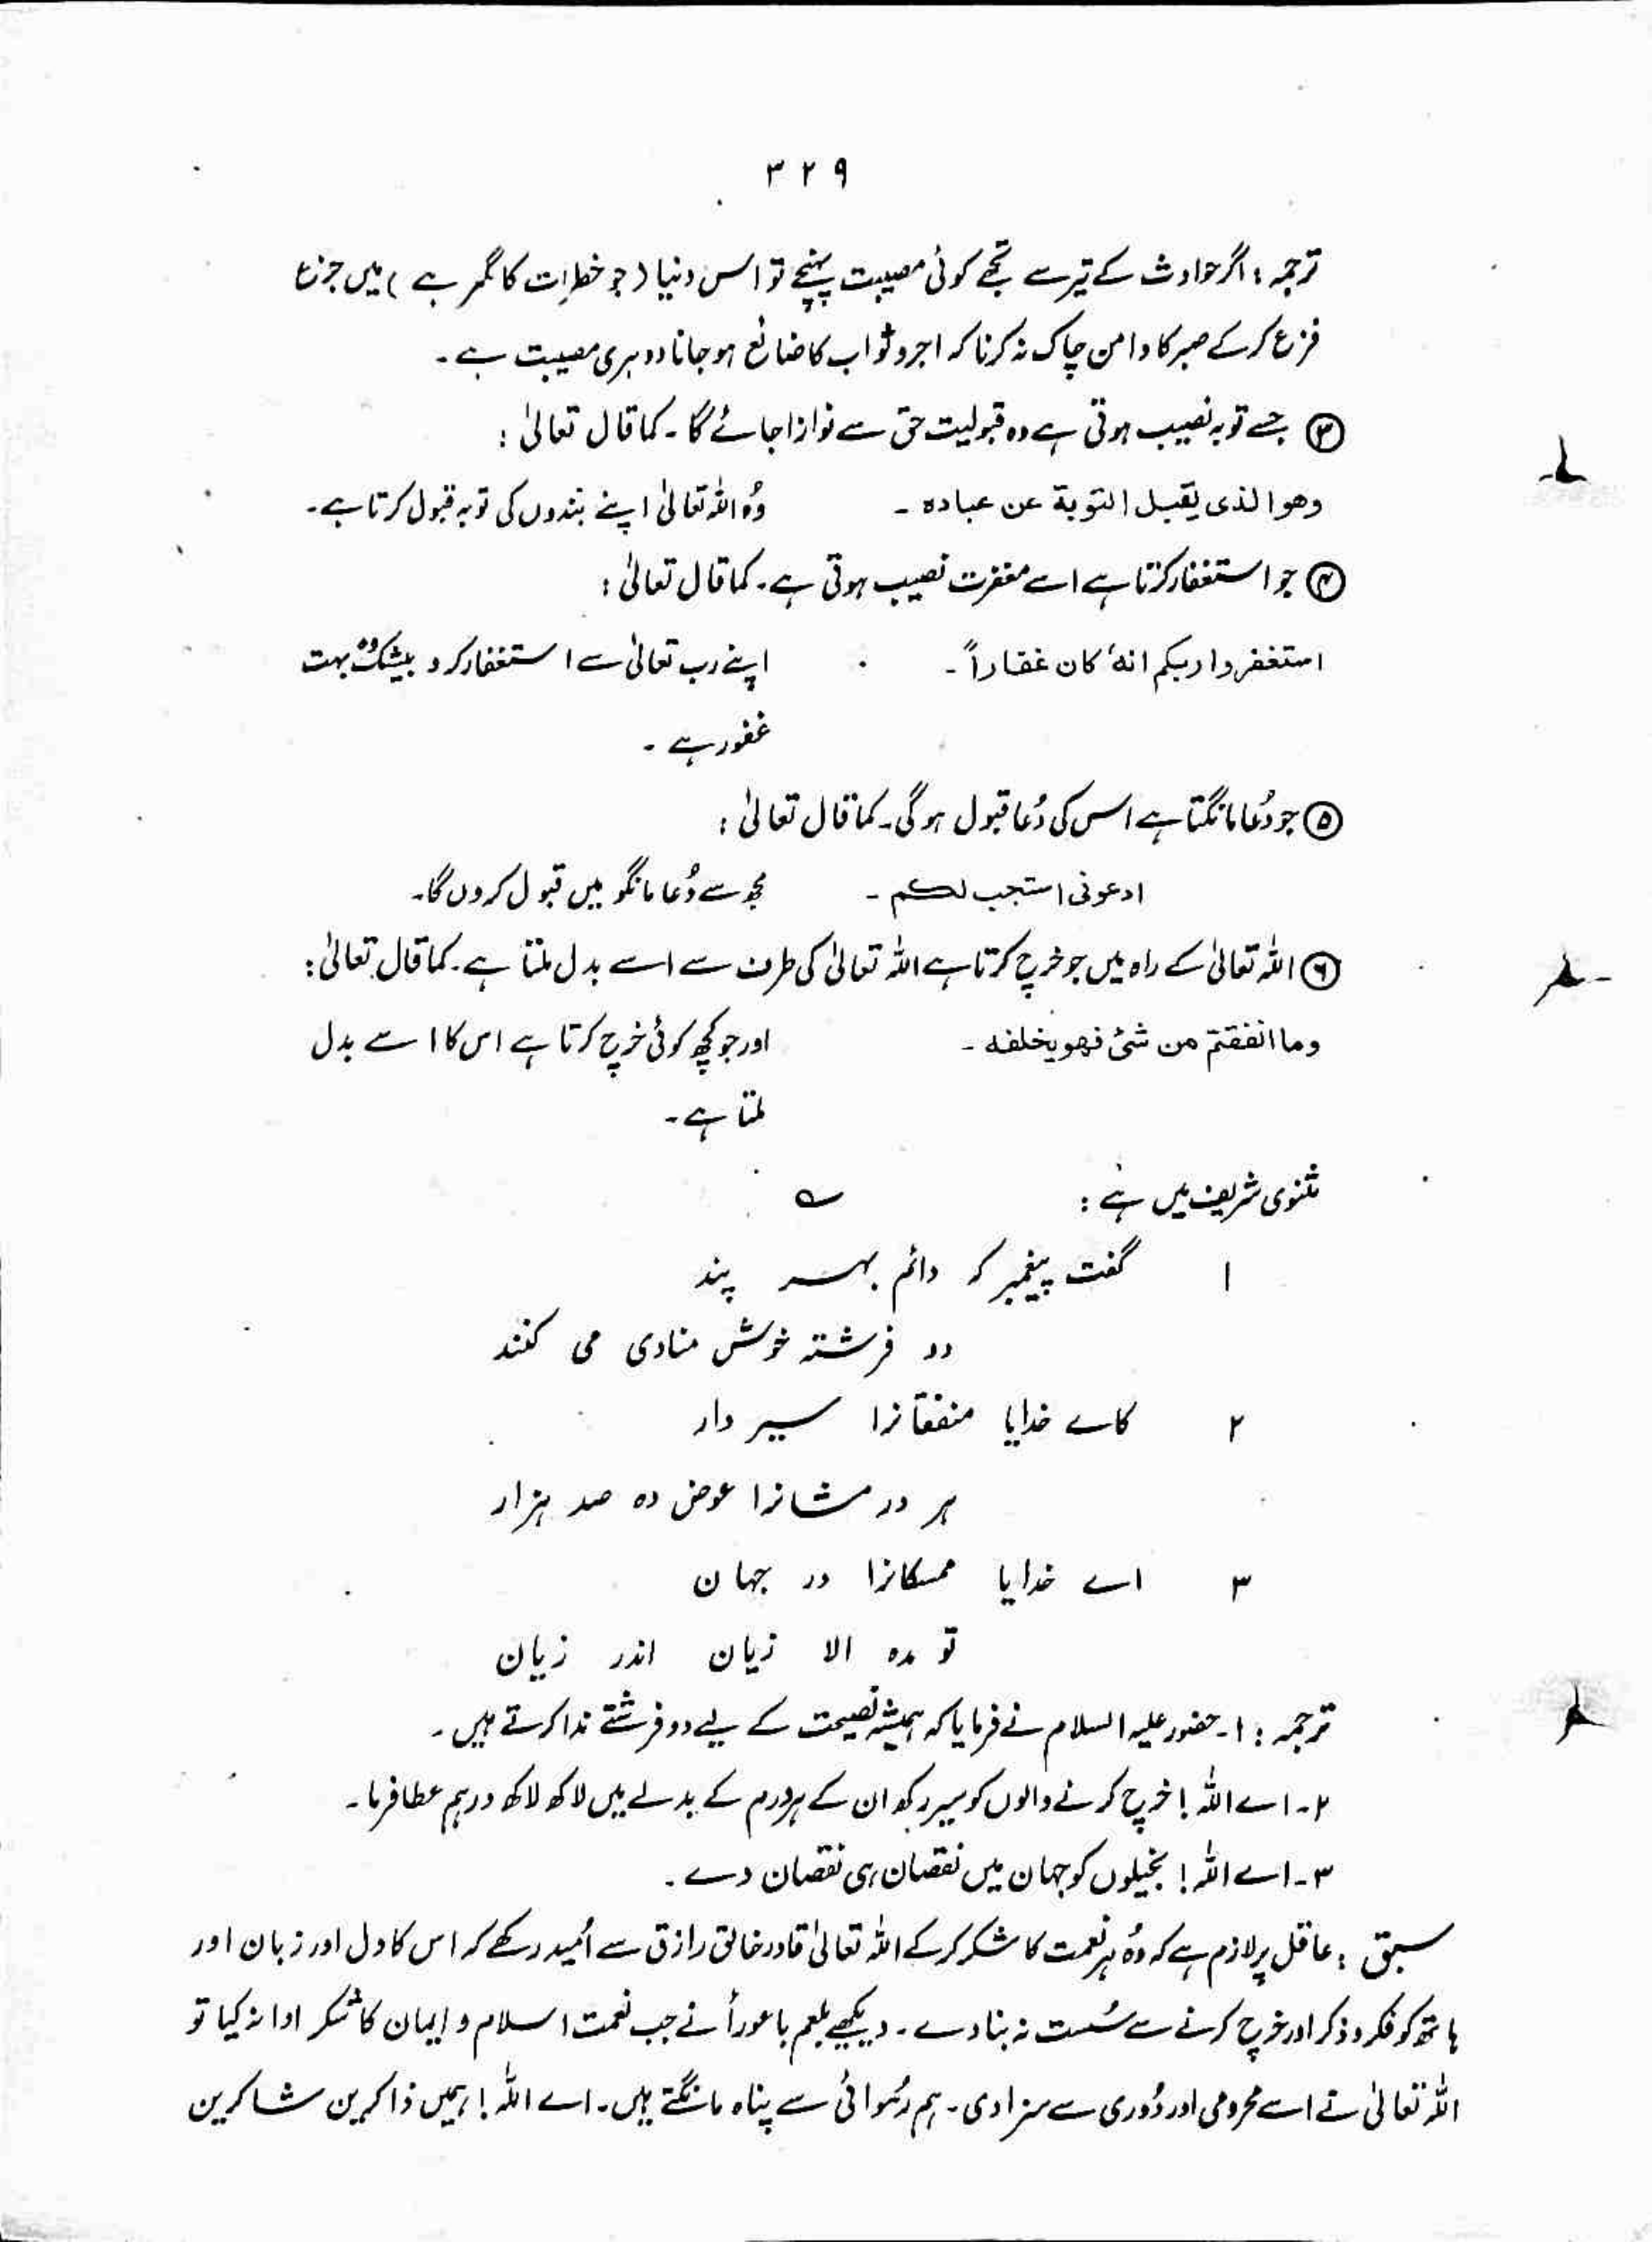 ۳۲۹
ترجمہ : اگر حوادث کے تیر سے تجھے کوئی مصیبت پہنچے تو اس دنیا (جو خطرات کا گھر ہے) میں جزع
فزع کرکے صبر کا دامن چاک نہ کرنا کہ اجر و ثواب کا ضائع ہو جانا دوہری مصیبت ہے۔
③ جسے توبہ نصیب ہوتی ہے وہ قبولیت حق سے نوازا جائے گا۔ کما قال تعالیٰ :
وھوالذی یقبل التوبۃ عن عبادہ ۔ وُہ اللہ تعالیٰ اپنے بندوں کی توبہ قبول کرتا ہے۔
④ جو استغفار کرتا ہے اسے مغفرت نصیب ہوتی ہے۔ کما قال تعالیٰ :
استغفروا ربکم انہٗ کان غفاراً۔ اپنے رب تعالیٰ سے استغفار کرو بیشک وُہ بہت
غفور ہے ۔
⑤ جو دُعا مانگتا ہے اس کی دُعا قبول ہوگی۔ کما قال تعالیٰ :
ادعونی استجب لکم ۔ مجھ سے دُعا مانگو میں قبول کروں گا۔
⑥ اللہ تعالیٰ کے راہ میں جو خرچ کرتا ہے اللہ تعالیٰ کی طرف سے اسے بدل ملتا ہے۔ کما قال تعالیٰ :
وما انفقتم من شئ فھو یخلفہ ۔ اور جو کچھ کوئی خرچ کرتا ہے اس کا اسے بدل
ملتا ہے۔
مثنوی شریف میں ہے : ؎
۱ گفت پیغمبر کہ دائم بہر پند
دو فرشتہ خوش منادی می کنند
۲ کاے خدایا منفقانرا سیر دار
ہر درمشانرا عوض دہ صد ہزار
۳ اے خدایا ممسکانرا در جہان
تو مدہ الا زیان اندر زیان
ترجمہ : ۱۔ حضور علیہ السلام نے فرمایا کہ ہمیشہ نصیحت کے لیے دو فرشتے ندا کرتے ہیں۔
۲۔ اے اللہ! خرچ کرنے والوں کو سیر رکھ ان کے ہر درم کے بدلے میں لاکھ لاکھ درہم عطا فرما۔
۳۔ اے اللہ! بخیلوں کو جہان میں نقصان ہی نقصان دے ۔
سبق : عاقل پر لازم ہے کہ وُہ ہر نعمت کا شکر کرکے اللہ تعالیٰ قادر خالق رازق سے اُمید رکھے کہ اس کا دل اور زبان اور
ہاتھ کو فکر و ذکر اور خرچ کرنے سے سُست نہ بنا دے۔ دیکھیے بلعم باعوراٗ نے جب نعمت اسلام و ایمان کا شکر ادا نہ کیا تو
اللہ تعالیٰ نے اسے محرومی اور دُوری سے سزا دی۔ ہم رُسوائی سے پناہ مانگتے ہیں۔ اے اللہ! ہمیں ذاکرین شاکرین